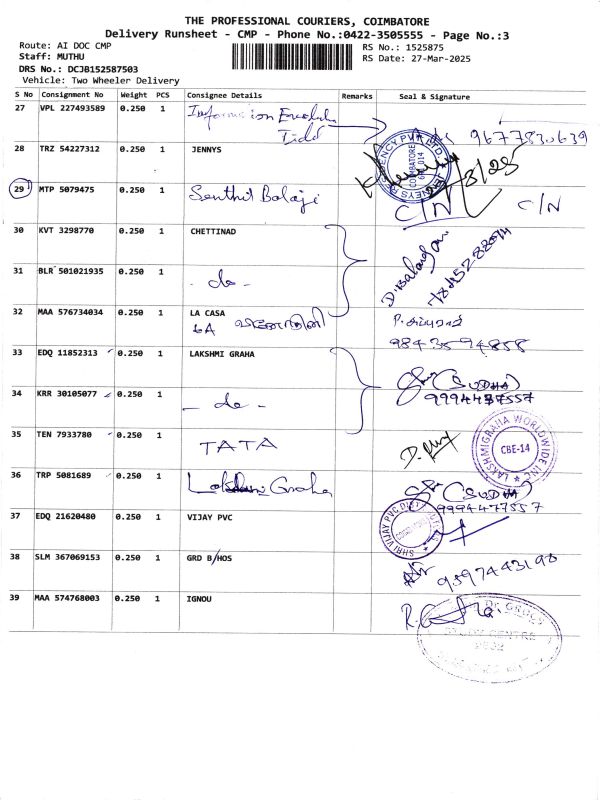 THE PROFESSIONAL COURIERS, COIMBATORE
Delivery Runsheet - CMP - Phone No.:0422-3505555 - Page No.:3
Route: AI DOC CMP
RS No.: 1525875
Staff: MUTHU
RS Date: 27-Mar-2025
DRS No.: DCJB152587503
Vehicle: Two Wheeler Delivery
S No Consignment No Weight PCS Consignee Details Remarks Seal & Signature
27 VPL 227493589 0.250 1 9677830639
28 TRZ 54227312 0.250 1 JENNYS
COIMBATORE
29 MTP 5079475 0.250 1 Senthil Balaji C/N C/N
30 KVT 3298770 0.250 1 CHETTINAD
31 BLR 501021935 0.250 1 - do -
32 MAA 576734034 0.250 1 LA CASA
6A
9843594858
33 EDQ 11852313 0.250 1 LAKSHMI GRAHA (SUDHA)
9994477557
34 KRR 30105077 0.250 1 - do -
35 TEN 7933780 0.250 1 TATA
LAKSHMIGRAHA WORLDWIDE INC.
CBE-14
36 TRP 5081689 0.250 1 Lakshmi Graha (SUDHA)
9994477557
37 EDQ 21620480 0.250 1 VIJAY PVC
SHRI VIJAY PVC
38 SLM 367069153 0.250 1 GRD B/HOS 9597443198
39 MAA 574768003 0.250 1 IGNOU
STUDY CENTRE